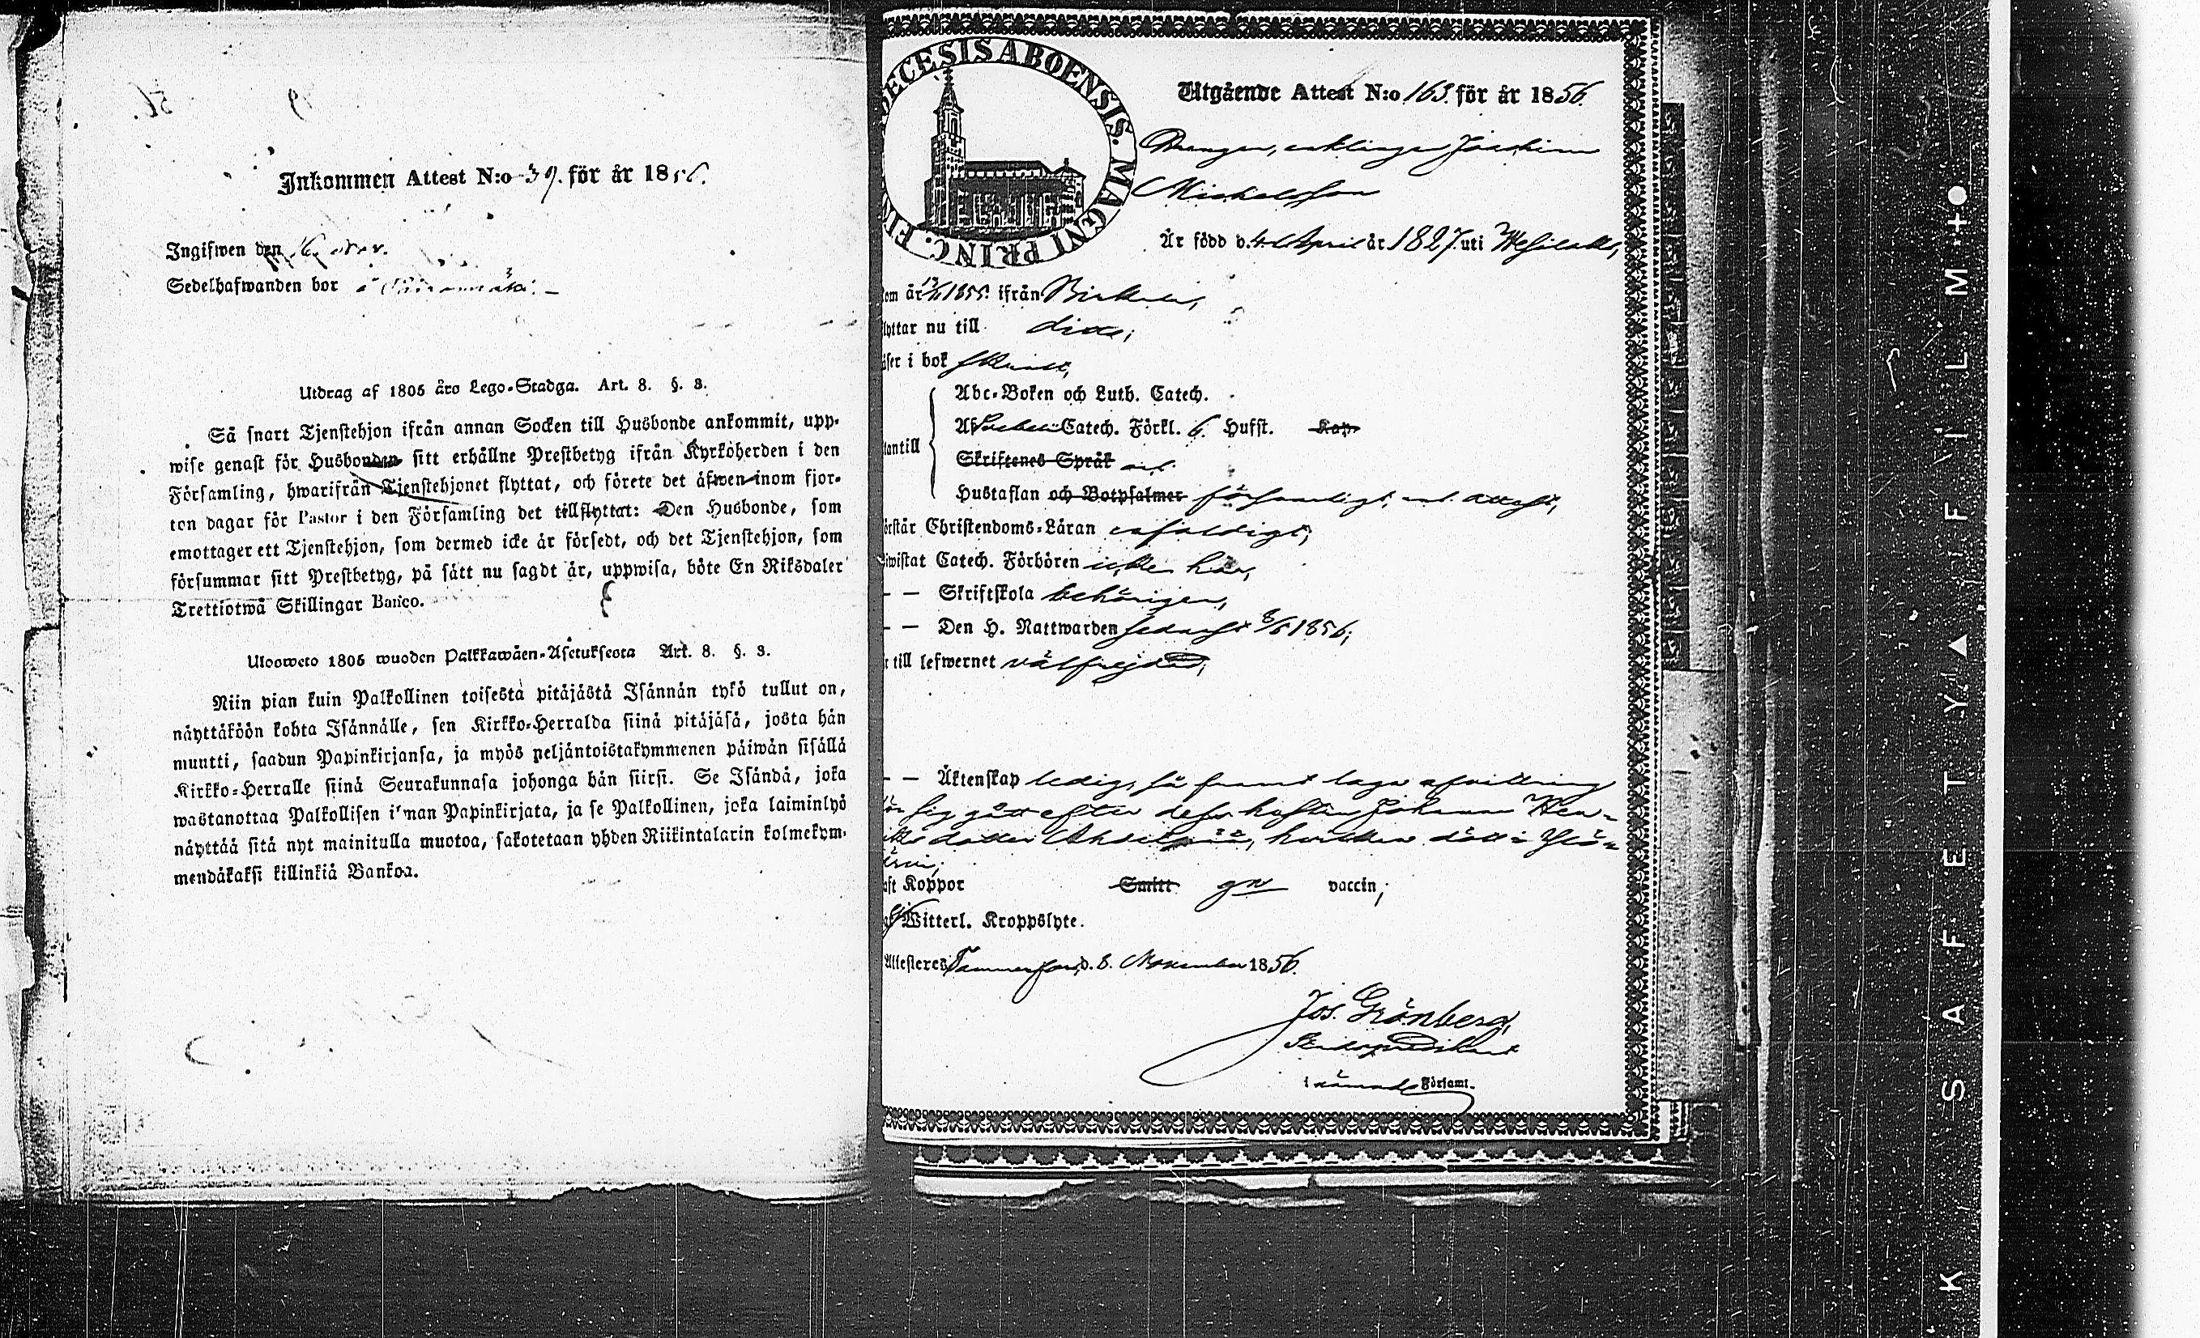 Inkommen Attest N:o 39. för år 1856.
Ingifwen den 16 Nov.
Sedelhafwanden bor å
Utdrag af 1805 års Lego-Stadga. Art. 8. §. 3.
Så snart Tjenstehjon ifrån annan Socken till Husbonde ankommit, upp-
wise genast för Husbonden sitt erhållne Prestbetyg ifrån Kyrkoherden i den
Församling, hwarifrån Tjenstehjonet flyttat, och förete det äfwen inom fjor-
ton dagar för Pastor i den Församling det tillflyttat: Den Husbonde, som
emottager ett Tjenstehjon, som dermed icke är försedt, och det Tjenstehjon, som
försummar sitt Prestbetyg, på sätt nu sagdt är, uppwisa, böte En Riksdaler
Trettiotwå Skillingar Banco.
Ulosweto 1805 wuoden Palkkawäen-Asetuksesta Art. 8. §. 3.
Niin pian kuin Palkollinen toisesta pitäjästä Isännän tykö tullut on,
näyttäköön kohta Isännälle, sen Kirkko-Herralda siinä pitäjäsä, josta hän
muutti, saadun Papinkirjansa, ja myös neljäntoistakymmenen päiwän sisällä
Kirkko-Herralle siinä Seurakunnasa johonga hän siirsi. Se Isändä, joka
wastanottaa Palkollisen i'man Papinkirjata, ja se Palkollinen, joka laiminlyö
näyttää sitä nyt mainitulla muotoa, sakotetaan yhden Riikintalarin kolmekym-
mendäkaksi killinkiä Bankoa.
ECESIS ABOENSIS. MAGNI PRINC. FIN
Utgående Attest N:o 163. för år 1856.
Drengen, enklingen Joachim
Michelsson
Är född d. 4 April år 1827. uti Wesilaks,
om år 1855. ifrån Birkala,
lyttar nu till dito;
äser i bok
Abc-Boken och Luth. Catech.
Af Catech. Förkl. 6. Hufst. Kap.
utantill
Skriftenes Språk
Hustaflan och Botpsalmer försvarligt, enl. attest,
örstår Christendoms-Läran enfaldigt;
iwistat Catech. Förhören icke här,
— — Skriftskola behörigen,
— — Den H. Nattwarden sednast 8/6 1856;
t till lefwernet välfrejdad;
— — Äktenskap ledig, så framt laga afvittring
för sig gått efter dess hustru Johanna Hen-
riksdotter, hvilken dött i Ylö-
järvi;
aft Koppor Smitt gn vaccin;
Witterl. Kroppslyte.
Attesteres Tammerfors, d. 8. November 1856.
Jos. Grönberg,
i nämnde Församl.
K SAFETY ▲ FILM +●